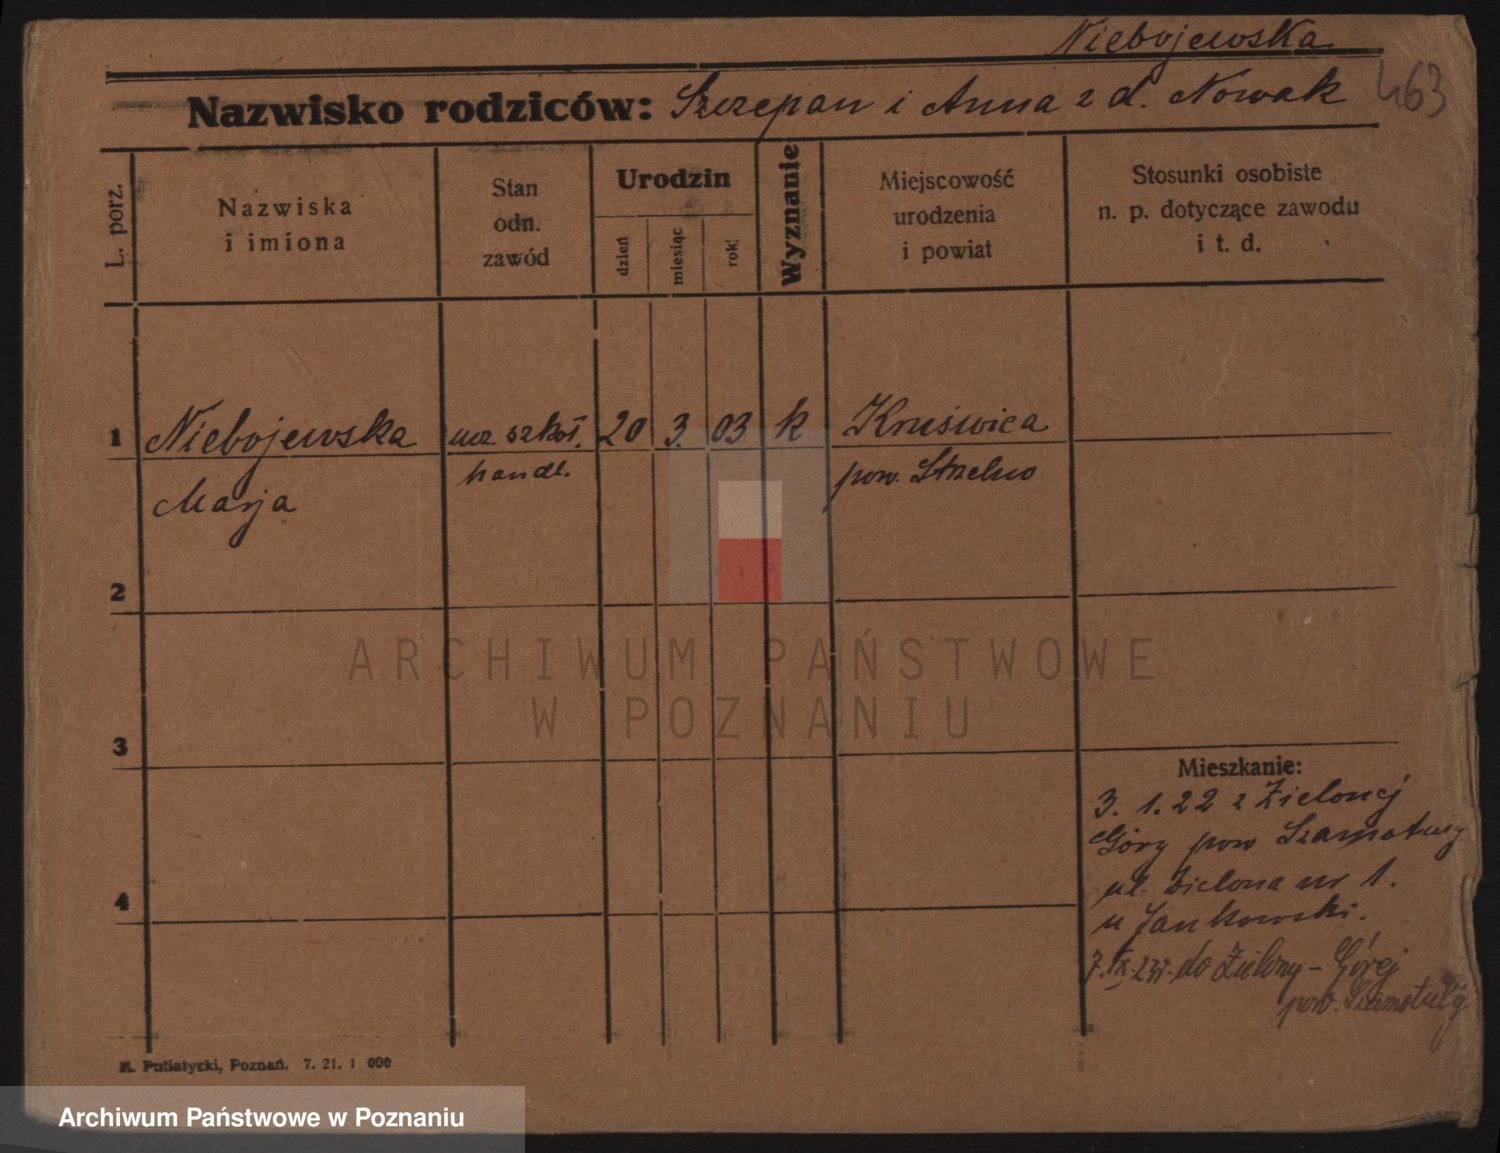 Niebojewska
463
Nazwisko rodziców: Szczepan i Anna z d. Nowak
L. porz.
Nazwiska
i imiona
Stan
odn.
zawód
Urodzin
dzień
miesiąc
rok
Wyznanie
Miejscowość
urodzenia
i powiat
Stosunki osobiste
n. p. dotyczące zawodu
i t. d.
1 Niebojewska ucz szkoł. 20 3. 03 k Kruświca
Marja handl. pow. Strzelno
2
3
4
Mieszkanie:
3. 1. 22 z Zielonej
Góry pow Szamotuły
ul. Zielona nr 1.
u Jankowski.
7. IX. 23r. do Zielony-Górej
pow. Szamotuły
Putiatycki, Poznań. 7. 21. 1 000
ARCHIWUM PAŃSTWOWE
W POZNANIU
Archiwum Państwowe w Poznaniu